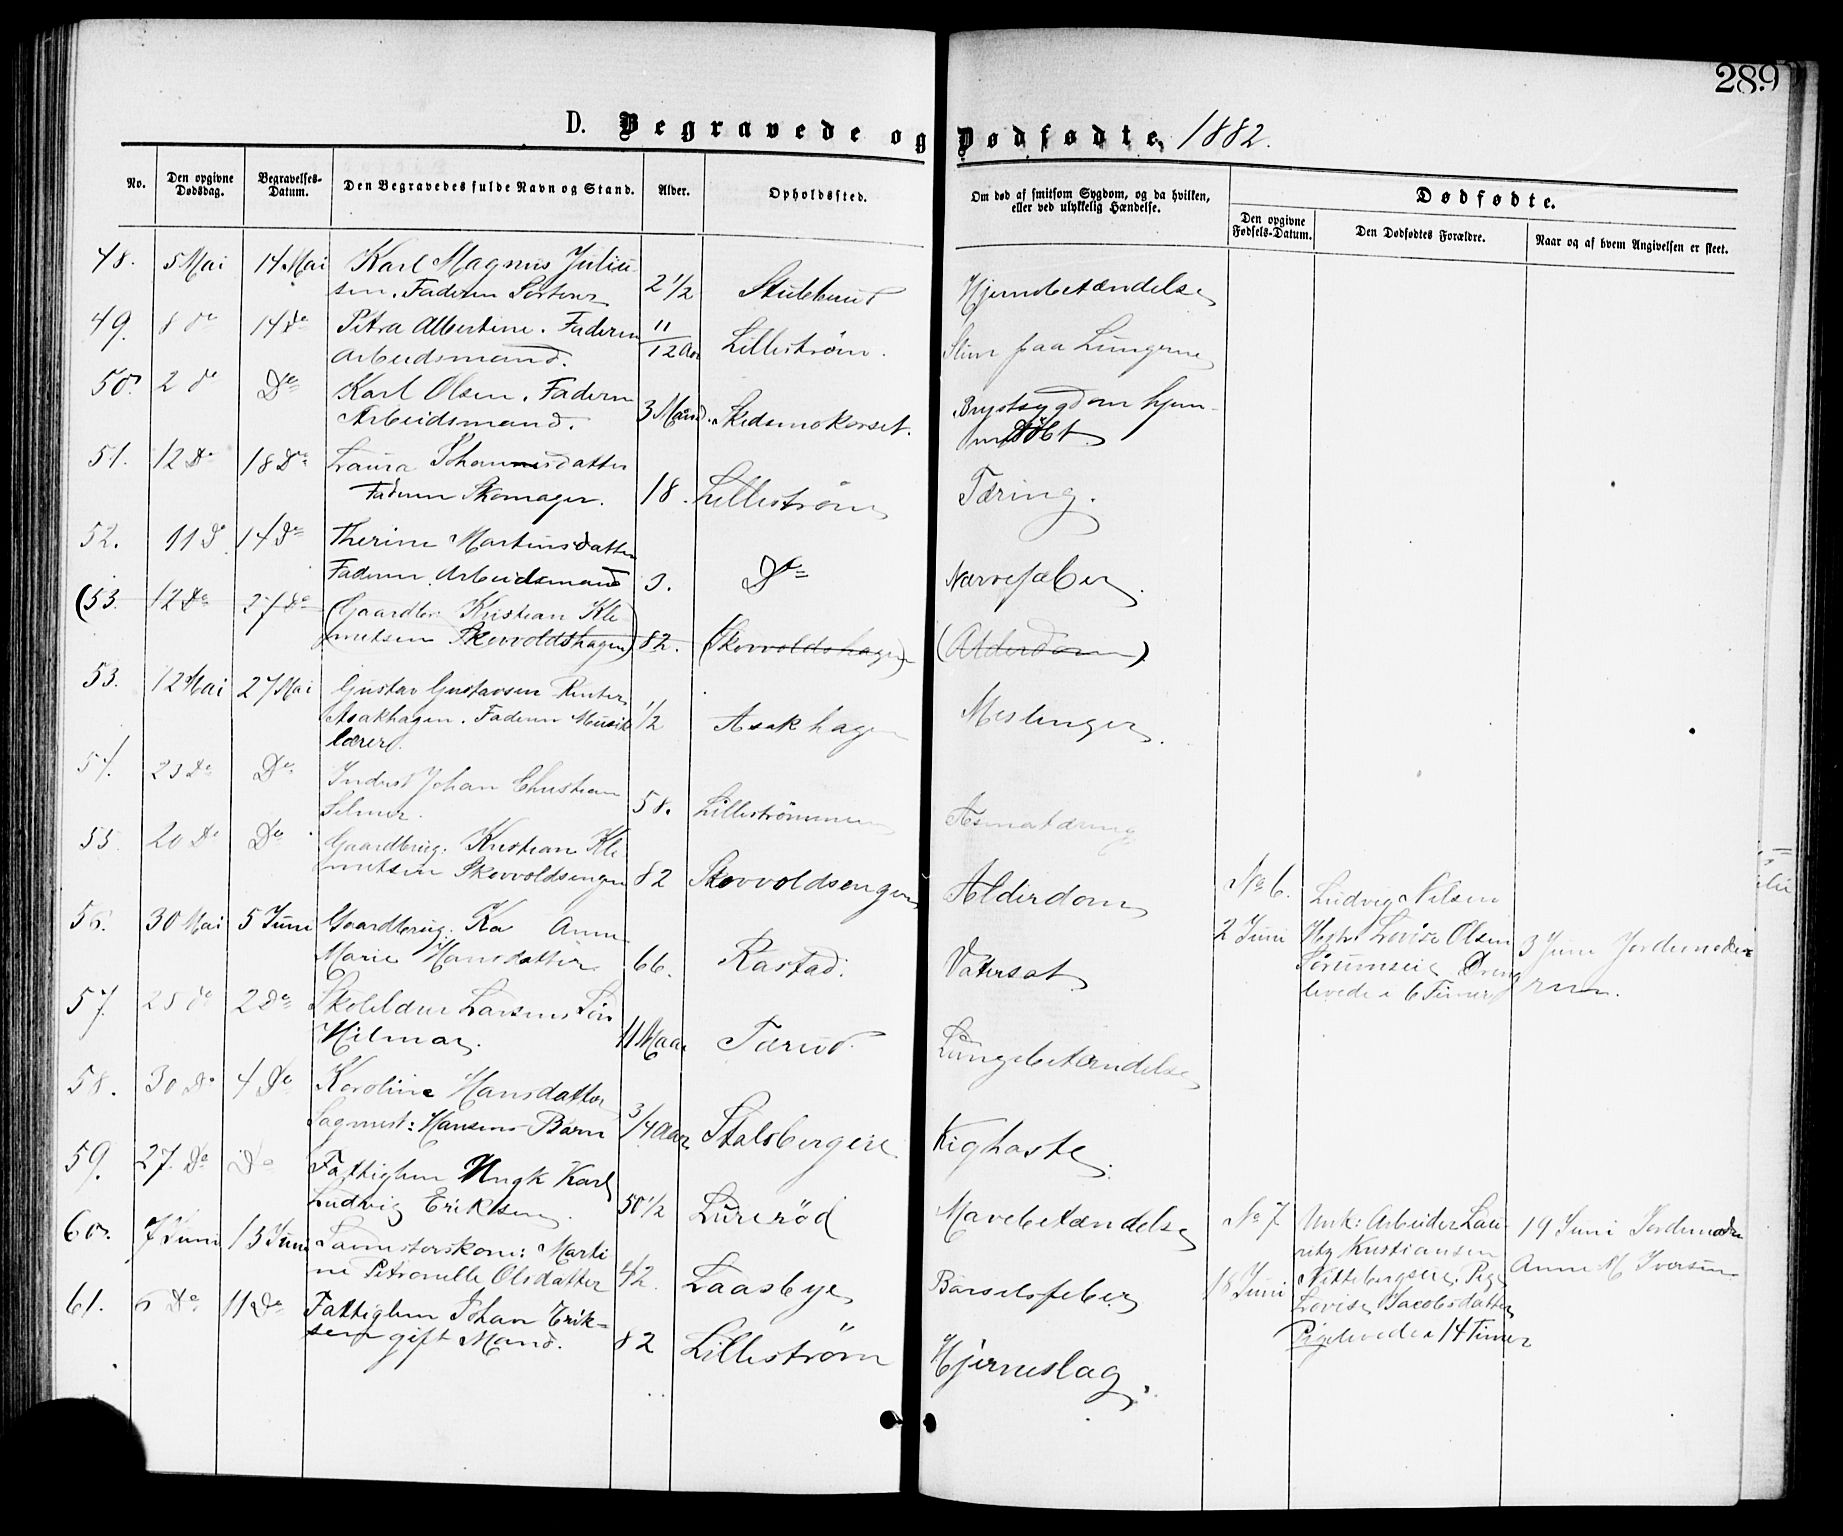 289
D. Begravede og Dødfødte, 1882.
No.
Den opgivne Dødsdag.
Begravelses-Datum.
Den Begravedes fulde Navn og Stand.
Alder.
Opholdssted.
Om død af smitsom Sygdom, og da hvilken, eller ved ulykkelig Hændelse.
Dødfødte.
Den opgivne Fødsels-Datum.
Den Dødfødtes Forældre.
Naar og af hvem Angivelsen er skeet.
48. 5 Mai 14 Mai Karl Magnus Juliu-
sen. Faderen 2 1/2 Hjernebetændelse
49. 8 do 14 Do Petra Albertine. Faderen 11/12 Aar Lillestrøm. Slim paa Lungerne
Arbeidsmand.
50. 2 do Do Karl Olsen. Faderen 3 Maand. Skedsmokorset. Brystsygdom hjem-
Arbeidsmand. medøbt
51. 12 Do 18 Do Laura Johannesdatter
Faderen Skomager. 18. Lillestrøm Tæring.
52. 11 D 14 Do Therine Martinsdatter
Faderen Arbeidsmand 3. Do Nervefeber
(53. 12 Do 27 Do (Gaardbr: Kristian Kle
metsen Skovvoldshagen) 82. (Skovvoldshagen) (Alderdom)
53. 12 Mai 27 Mai Gustav Gustavsen
Asakhagen. Faderen Musik 1/2 Asakhagen Meslinger.
lærer.
54. 23 Do Do Inderst Johan Christian
Selmer. 58. Lillestrømmen
55. 20 Do Do Gaardbrug: Kristian Kle
metsen Skovvoldsengen 82 Skovvoldsengen Alderdom
No 6. Ludvig Nilsen
56. 30 Mai 5 Juni Gaardbrug: Ka Anne
Marie Hansdatter 66. Rastad. Vatersot
2 Juni Hustr. Lovise Olsen 3 Juni Jordemode-
Sørumseie Dreng
levede i 6 Timer ren.
57. 25 do 2 Do Skolelærer Larsens Søn
Hilmar. 11 Maan Tærud. Lungebetændelse
58. 30 Do 4 Do Karoline Hansdatter
Sagmest: Hansens Barn 3/4 Aar Stalsbergeie Kighoste
59. 27. Do Do Fattiglem Ungk Karl
Ludvig Eriksen. 50 1/2 Lurerød Mavebetændelse
60. 7 Juni 13 Juni Marti
ne Petronelle Olsdatter 42. Laasbye Barselsfeber
No 7 Unk: Arbeider Lau
ritz Kristiansen 19 Juni Jordemoder
18 Juni Nittebergseie, Pige Anne M Iversen
Lovise Jacobsdatter
Pige levede i 14 Timer
61. 6 Do 11 Do Fattiglem Johan Erik-
sen gift Mand. 82 Lillestrøm Hjerneslag.